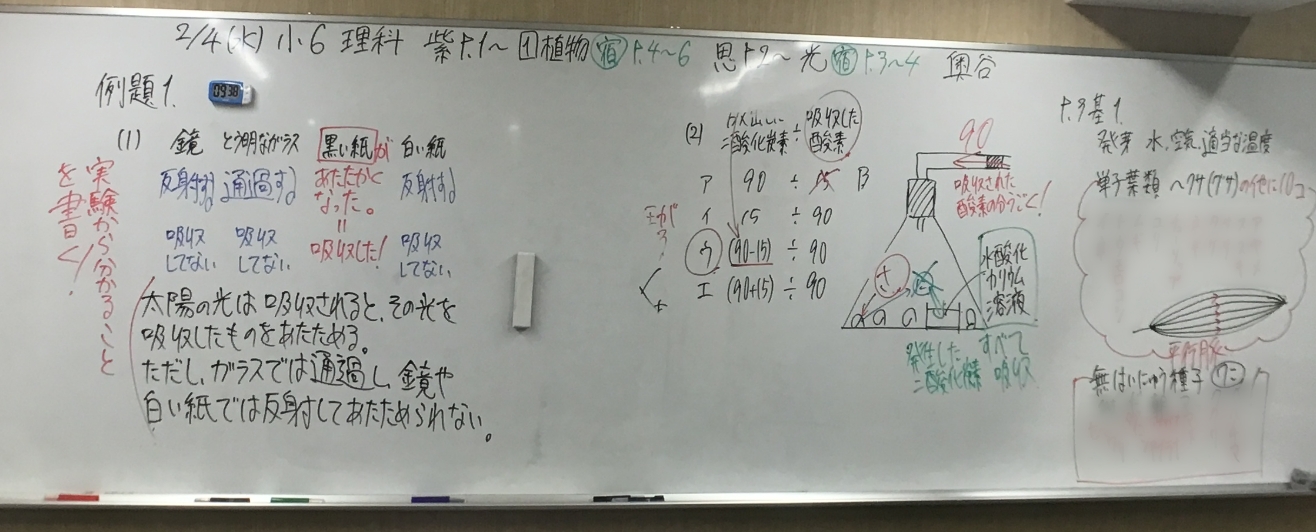 2/4(水) 小6 理科 紫P.1〜 1植物 宿P.4〜6 思P.2〜光 宿P.3〜4 奥谷
例題1.
09:38
(1) 鏡 とう明なガラス 黒い紙が 白い紙
反射する 通過する あたたかくなった。 反射する
吸収してない 吸収してない = 吸収した! 吸収してない
実験から分かること
を書く!
太陽の光は吸収されると、その光を
吸収したものをあたためる。
ただし、ガラスでは通過し、鏡や
白い紙では反射してあたためられない。
(2) 二酸化炭素 ÷ 吸収した酸素
ア 90 ÷ 15 B
イ 15 ÷ 90
ウ (90-15) ÷ 90
エ (90+15) ÷ 90
90
吸収された
酸素の分うごく!
水酸化
カリウム
溶液
発生した すべて
二酸化炭素 吸収
P.3基1.
発芽 水、空気、適当な温度
単子葉類
の他に10コ
平行脈
無はいにゅう種子